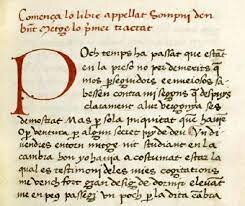 Comença lo libre appellat Sompni d'en
bnt Metge lo p'mer tractat
Poch temps ha passat que estāt
en la preso no per demerits q
mos p'seguidors e enveiosos sa
bessen contra mi segons q despuys
clarament a lur vergonya ses
demostrat Mas p sola iniquitat que hauiē
O p ventura p algun secret juy de deu Vn di
vendres entorn mige nit studiant en la
cambra hon yo hauia acostumat estar la
qual es testimoni de les mies cogitacions
me vench fort gran desig de dormir e leuāt
me en peus passegi vn poch p la dita cābra